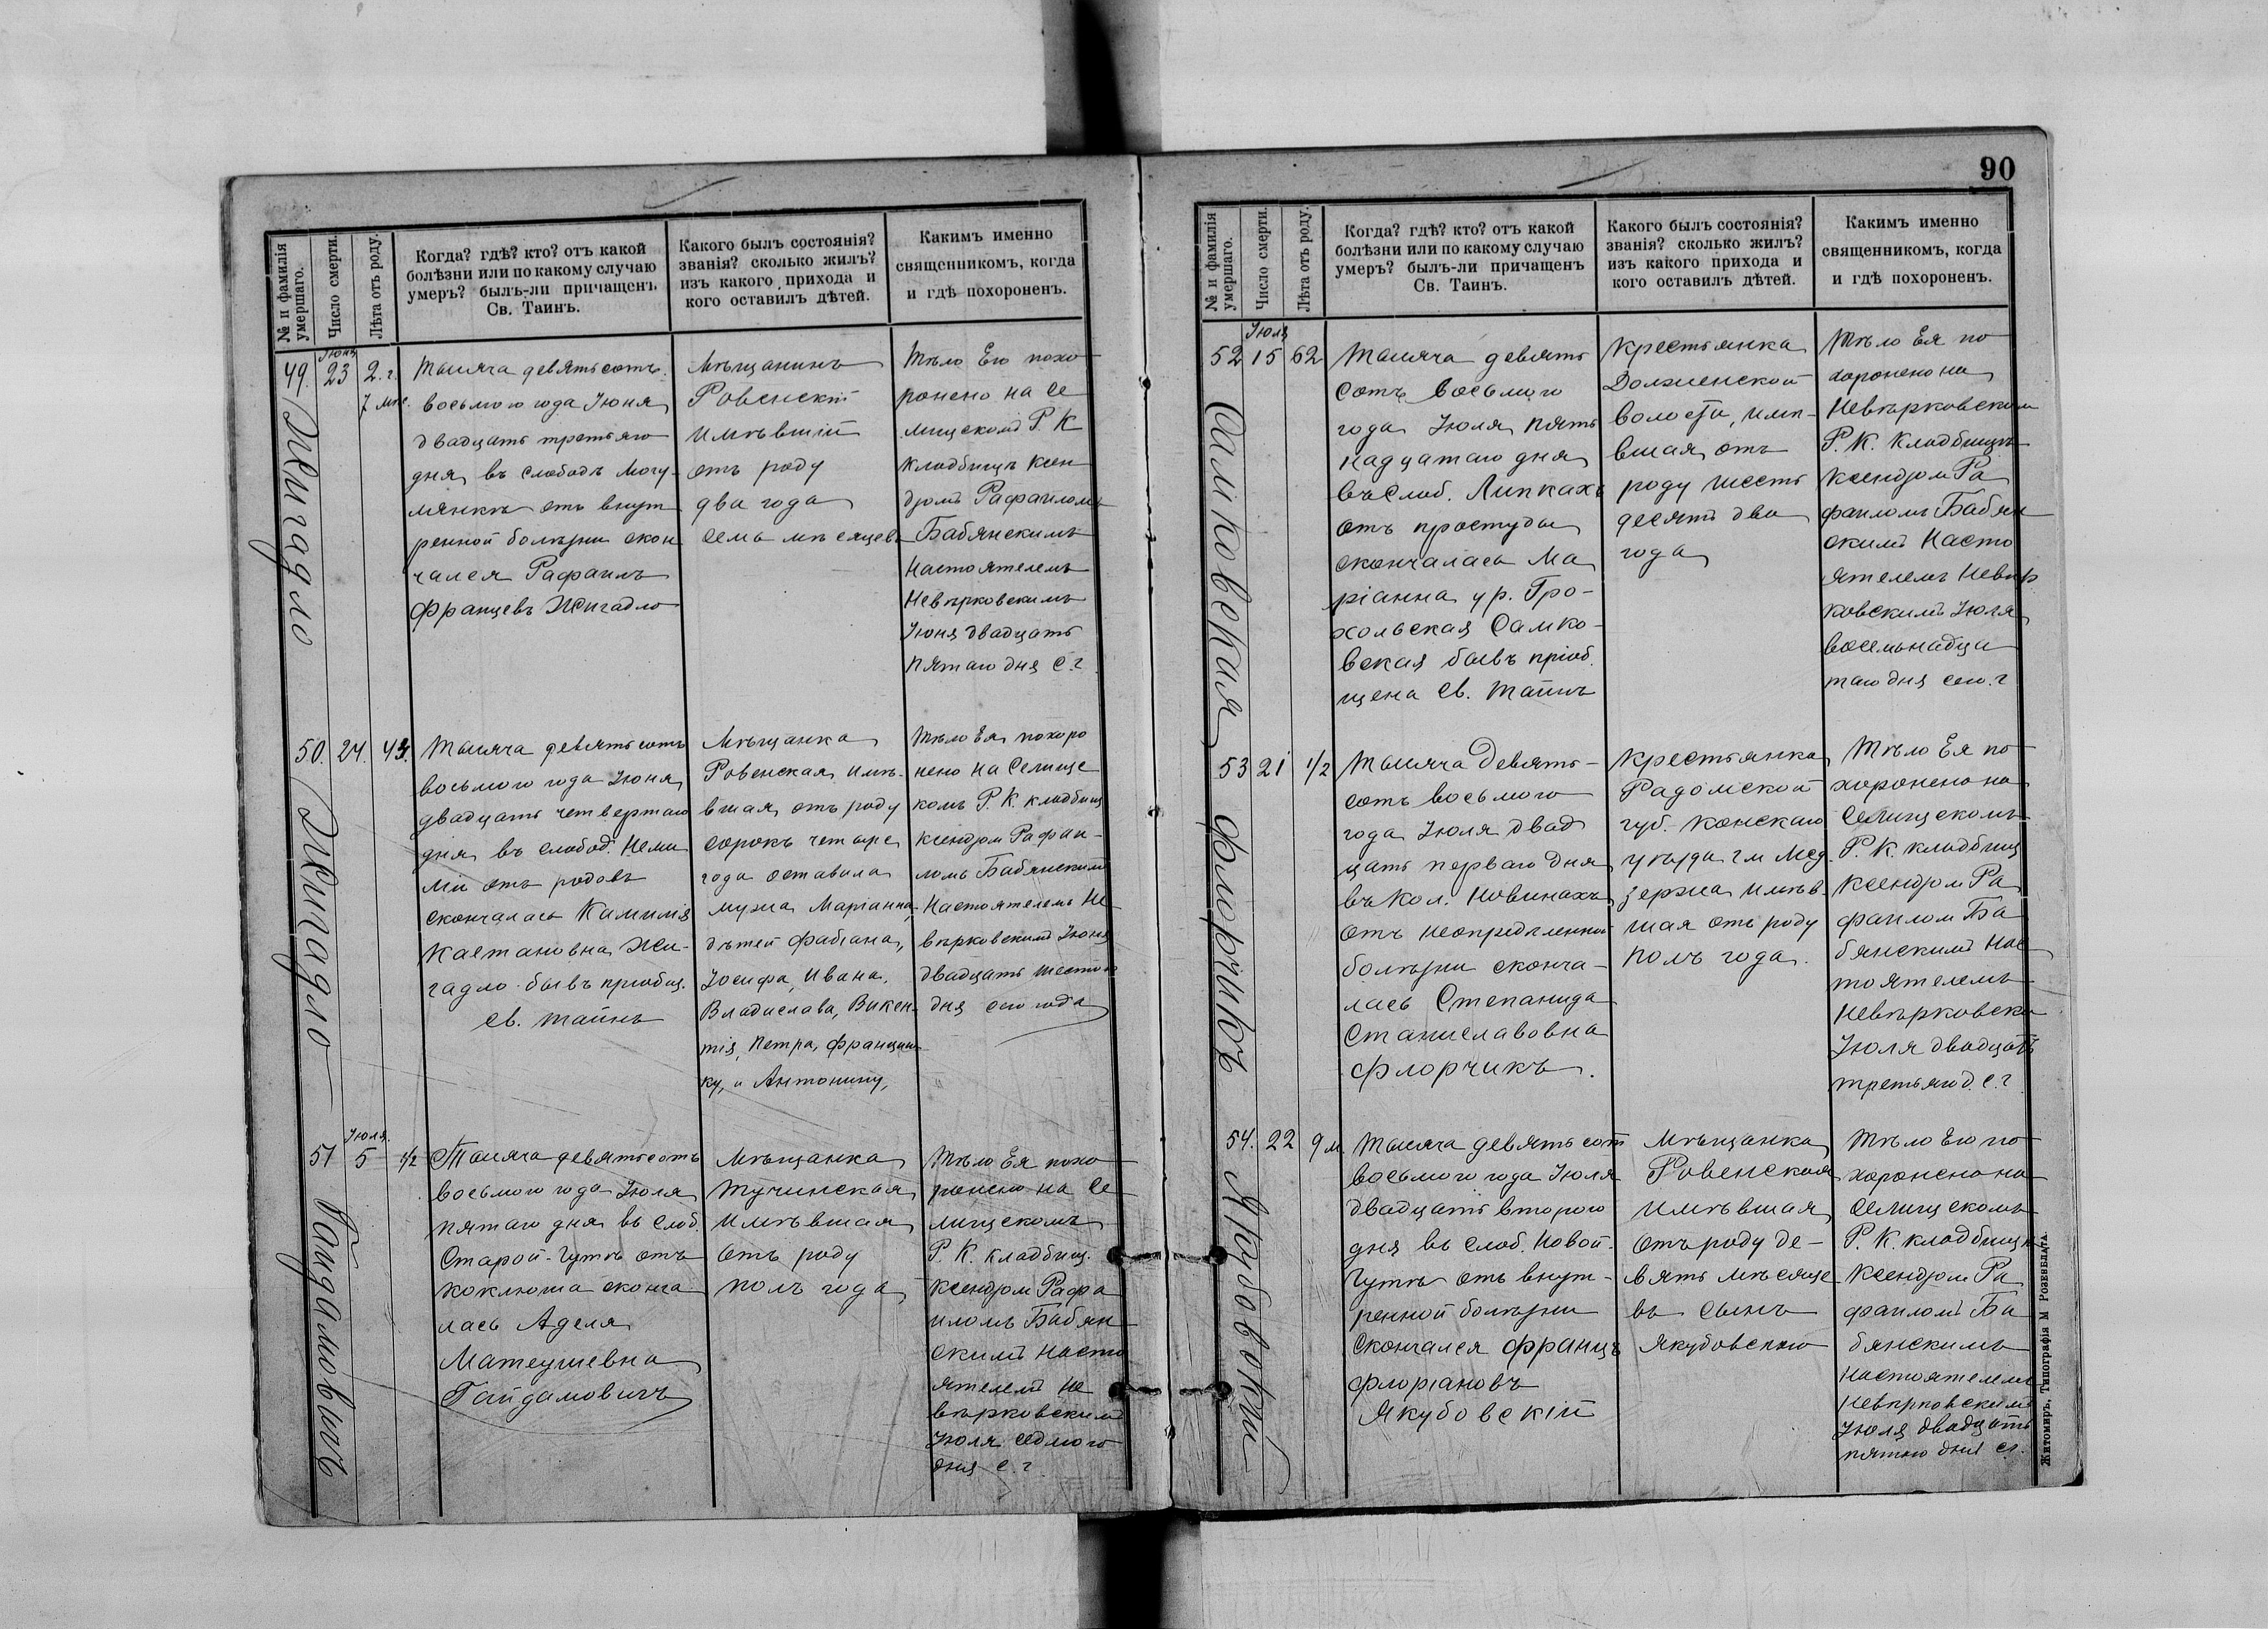 № и фамилія умершаго.
Число смерти.
Лѣта отъ роду.
Когда? гдѣ? кто? отъ какой
болѣзни или по какому случаю
умеръ? былъ-ли причащенъ
Св. Таинъ.
Какого былъ состоянія?
званія? сколько жилъ?
изъ какого прихода и
кого оставилъ дѣтей.
Какимъ именно
священникомъ, когда
и гдѣ похороненъ.
49.
Жигадло
Іюня
23
2. г.
7 мѣс.
Тысяча девятьсотъ
восьмого года Іюня
двадцать третьяго
дня въ слободѣ Могу-
лянкѣ отъ внут
ренной болѣзни скон
чался Рафаилъ
Францевъ Жигадло
Мѣщанинъ
Ровенскій
имѣвшій
отъ роду
два года
семь мѣсяцевъ
Тѣло Его похо
ронено на Се
лищскомъ Р. К
кладбищѣ Ксен
дзомъ Рафаиломъ
Бабянскимъ
Настоятелемъ
Невѣрковскимъ
Іюня двадцать
пятаго дня с. г
50.
Жигадло
24.
43.
Тысяча девятьсотъ
восьмого года Іюня
двадцать четвертаго
дня въ слобод. Неми
ліи отъ родовъ
скончалась Камилія
Каетановна Жи-
гадло бывъ пріобщ.
Св. Тайнъ
Мѣщанка
Ровенская имѣ-
вшая отъ роду
сорокъ четыре
года оставила
мужа Маріанна,
дѣтей Фабіана,
Іосифа, Ивана,
Владислава, Викен-
тія, Петра, Францишку,
и Антонину,
Тѣло Ея похоро
нено на Селище
комъ Р. К. кладбищ
ксендзом Рафаи-
ломъ Бабянскимъ
Настоятелемъ Не-
вѣрковскимъ Іюня
двадцать шестого
дня сего года
51
Гайдамовичъ
Іюля.
5
1/2
Тысяча девятьсотъ
восьмого года Іюля
пятаго дня въ слоб.
Старой-Гутѣ отъ
коклюша сконча
лась Аделя
Матеушевна
Гайдамовичъ
Мѣщанка
Тучинская
имѣвшая
отъ роду
полъ года
Тѣло Ея похо
ронено на Се
лищскомъ
Р. К. кладбищ.
ксендзом Рафа
иломъ Бабян
скимъ насто
ятелемъ Не
вѣрковскимъ
Іюля седмого
дня с. г.
90
№ и фамилія умершаго.
Число смерти.
Лѣта отъ роду.
Когда? гдѣ? кто? отъ какой
болѣзни или по какому случаю
умеръ? былъ-ли причащенъ
Св. Таинъ.
Какого былъ состоянія?
званія? сколько жилъ?
изъ какого прихода и
кого оставилъ дѣтей.
Какимъ именно
священникомъ, когда
и гдѣ похороненъ.
52
Самковская
Іюля
15
62
Тысяча девять
сотъ восьмого
года Іюля пять
надцатаго дня
въ слоб. Липкахъ
отъ простуды
скончалась Ма
ріанна ур. Гро-
хольская Самко-
вская бывъ пріоб
щена Св. Тайнъ
Крестьянка
Долженской
волости, имѣ-
вшая отъ
роду шесть
десятъ два
года
Тѣло Ея по
хоронено на
Невѣрковском
Р. К. Кладбищѣ
ксендзом Ра
фаиломъ Бабян
скимъ Насто
ятелемъ Невѣр
ковскимъ Іюля
восемьнадца
таго дня сего. г
53
Флорчикъ
21
1/2
Тысяча девять-
сотъ восьмого
года Іюля двад
цать перваго дня
въ кол. Новинахъ
отъ неопредѣленной
болѣзни сконча-
лась Степанида
Станиславовна
Флорчикъ.
Крестьянка
Радомской
губ. Конскаго
уѣзда гм Мед.
зержа имѣв
шая отъ роду
полъ года.
Тѣло Ея по
хоронено на
Селищскомъ
Р. К. кладбищ
Ксендзом Ра
фаилом Ба
бянскимъ Нас
тоятелемъ
Невѣрковски
Іюля двадцать
третьяго д. с. г
54.
Якубовскій
22
9 м
Тысяча девятьсот
восьмого года Іюля
двадцать второго
дня въ слоб. Новой-
Гутѣ отъ внут-
ренной болѣзни
скончался Францъ
Флоріановъ
Якубовскій
Мѣщанка
Ровенская
имѣвшая
отъ роду де-
вять мѣсяце
въ сынъ
Якубовскаго
Тѣло Его по
хоронено на
Селищскомъ
Р. К. кладбищѣ
Ксендзом Ра
фаиломъ Ба
бянскимъ
Настоятелем
Невѣрковскимъ
Іюля двадцать
пятаго дня с. г.
Житомиръ, Типографія М Розенблата.